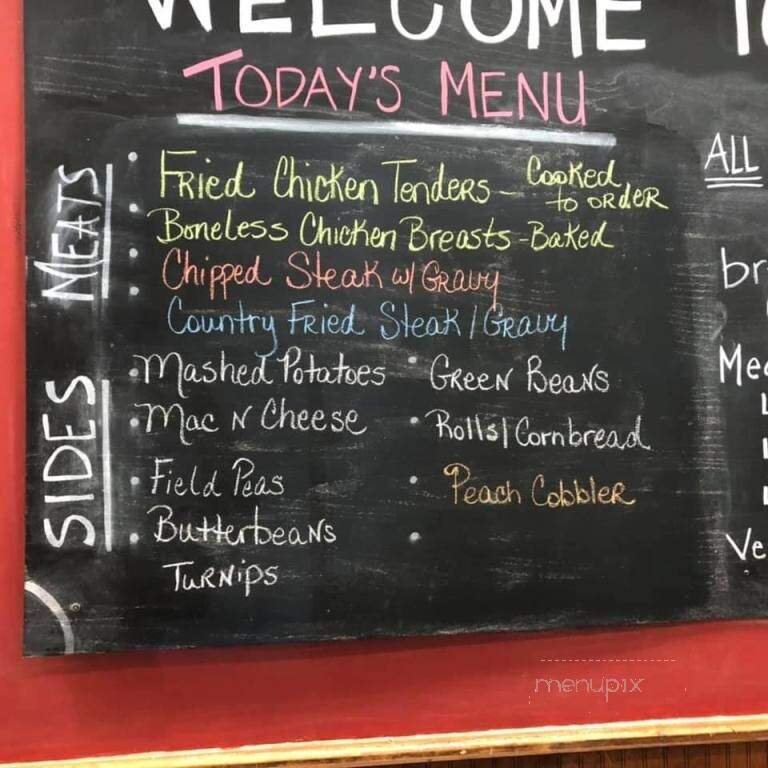 WELCOME
TODAY'S MENU
MEATS
• Fried Chicken Tenders - Cooked to order
• Boneless Chicken Breasts - Baked
• Chipped Steak w/ Gravy
• Country Fried Steak / Gravy
SIDES
• Mashed Potatoes
• Mac N Cheese
• Field Peas
• Butterbeans
Turnips
• Green Beans
• Rolls / Cornbread
• Peach Cobbler
•
ALL
menupix